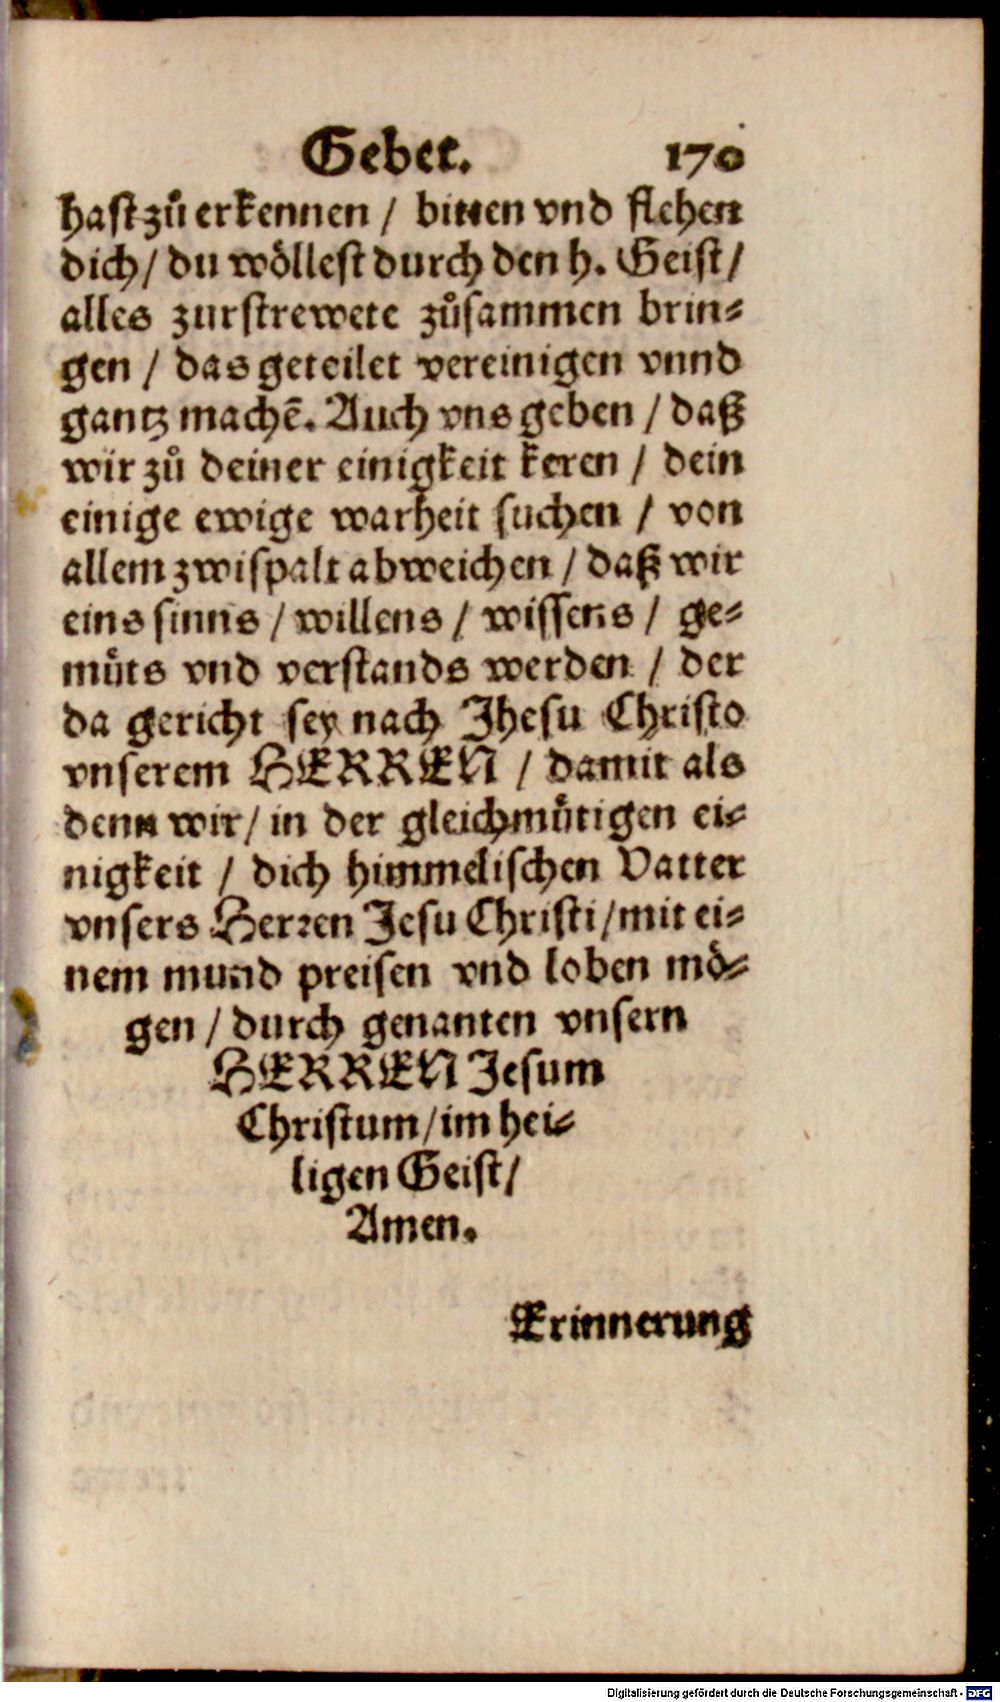 Gebet. 170
hast zů erkennen / bitten vnd flehen
dich / du wöllest durch den h. Geist /
alles zurstrewete zůsammen brin⸗
gen / das geteilet vereinigen vnnd
gantz machē. Auch vns geben / daß
wir zů deiner einigkeit keren / dein
einige ewige warheit suchen / von
allem zwispalt abweichen / daß wir
eins sinns / willens / wissens / ge⸗
můts vnd verstands werden / der
da gericht sey nach Jhesu Christo
vnserem HERREN / damit als
denn wir / in der gleichmůtigen ei⸗
nigkeit / dich himmelischen Vatter
vnsers Herren Jesu Christi / mit ei⸗
nem mund preisen vnd loben mö⸗
gen / durch genanten vnsern
HERREN Jesum
Christum / im hei⸗
ligen Geist /
Amen.
Erinnerung
Digitalisierung gefördert durch die Deutsche Forschungsgemeinschaft - DFG